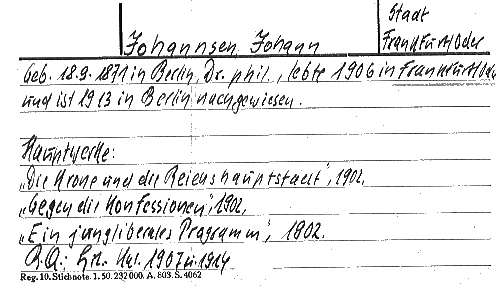 Stadt
Johannsen, Johann Frankfurt/Oder
Geb. 18.9.1871 in Berlin, Dr. phil., lebte 1906 in Frankfurt/Ode
und ist 1913 in Berlin nachgewiesen.
Hauptwerke:
„Die Krone und die Reichshauptstadt", 1902,
„Gegen die Konfessionen", 1902,
„Ein jungliberales Programm", 1902.
1907 u. 1914
Reg. 10. Stichnote. 1. 50. 232 000. A. 803. S. 4062